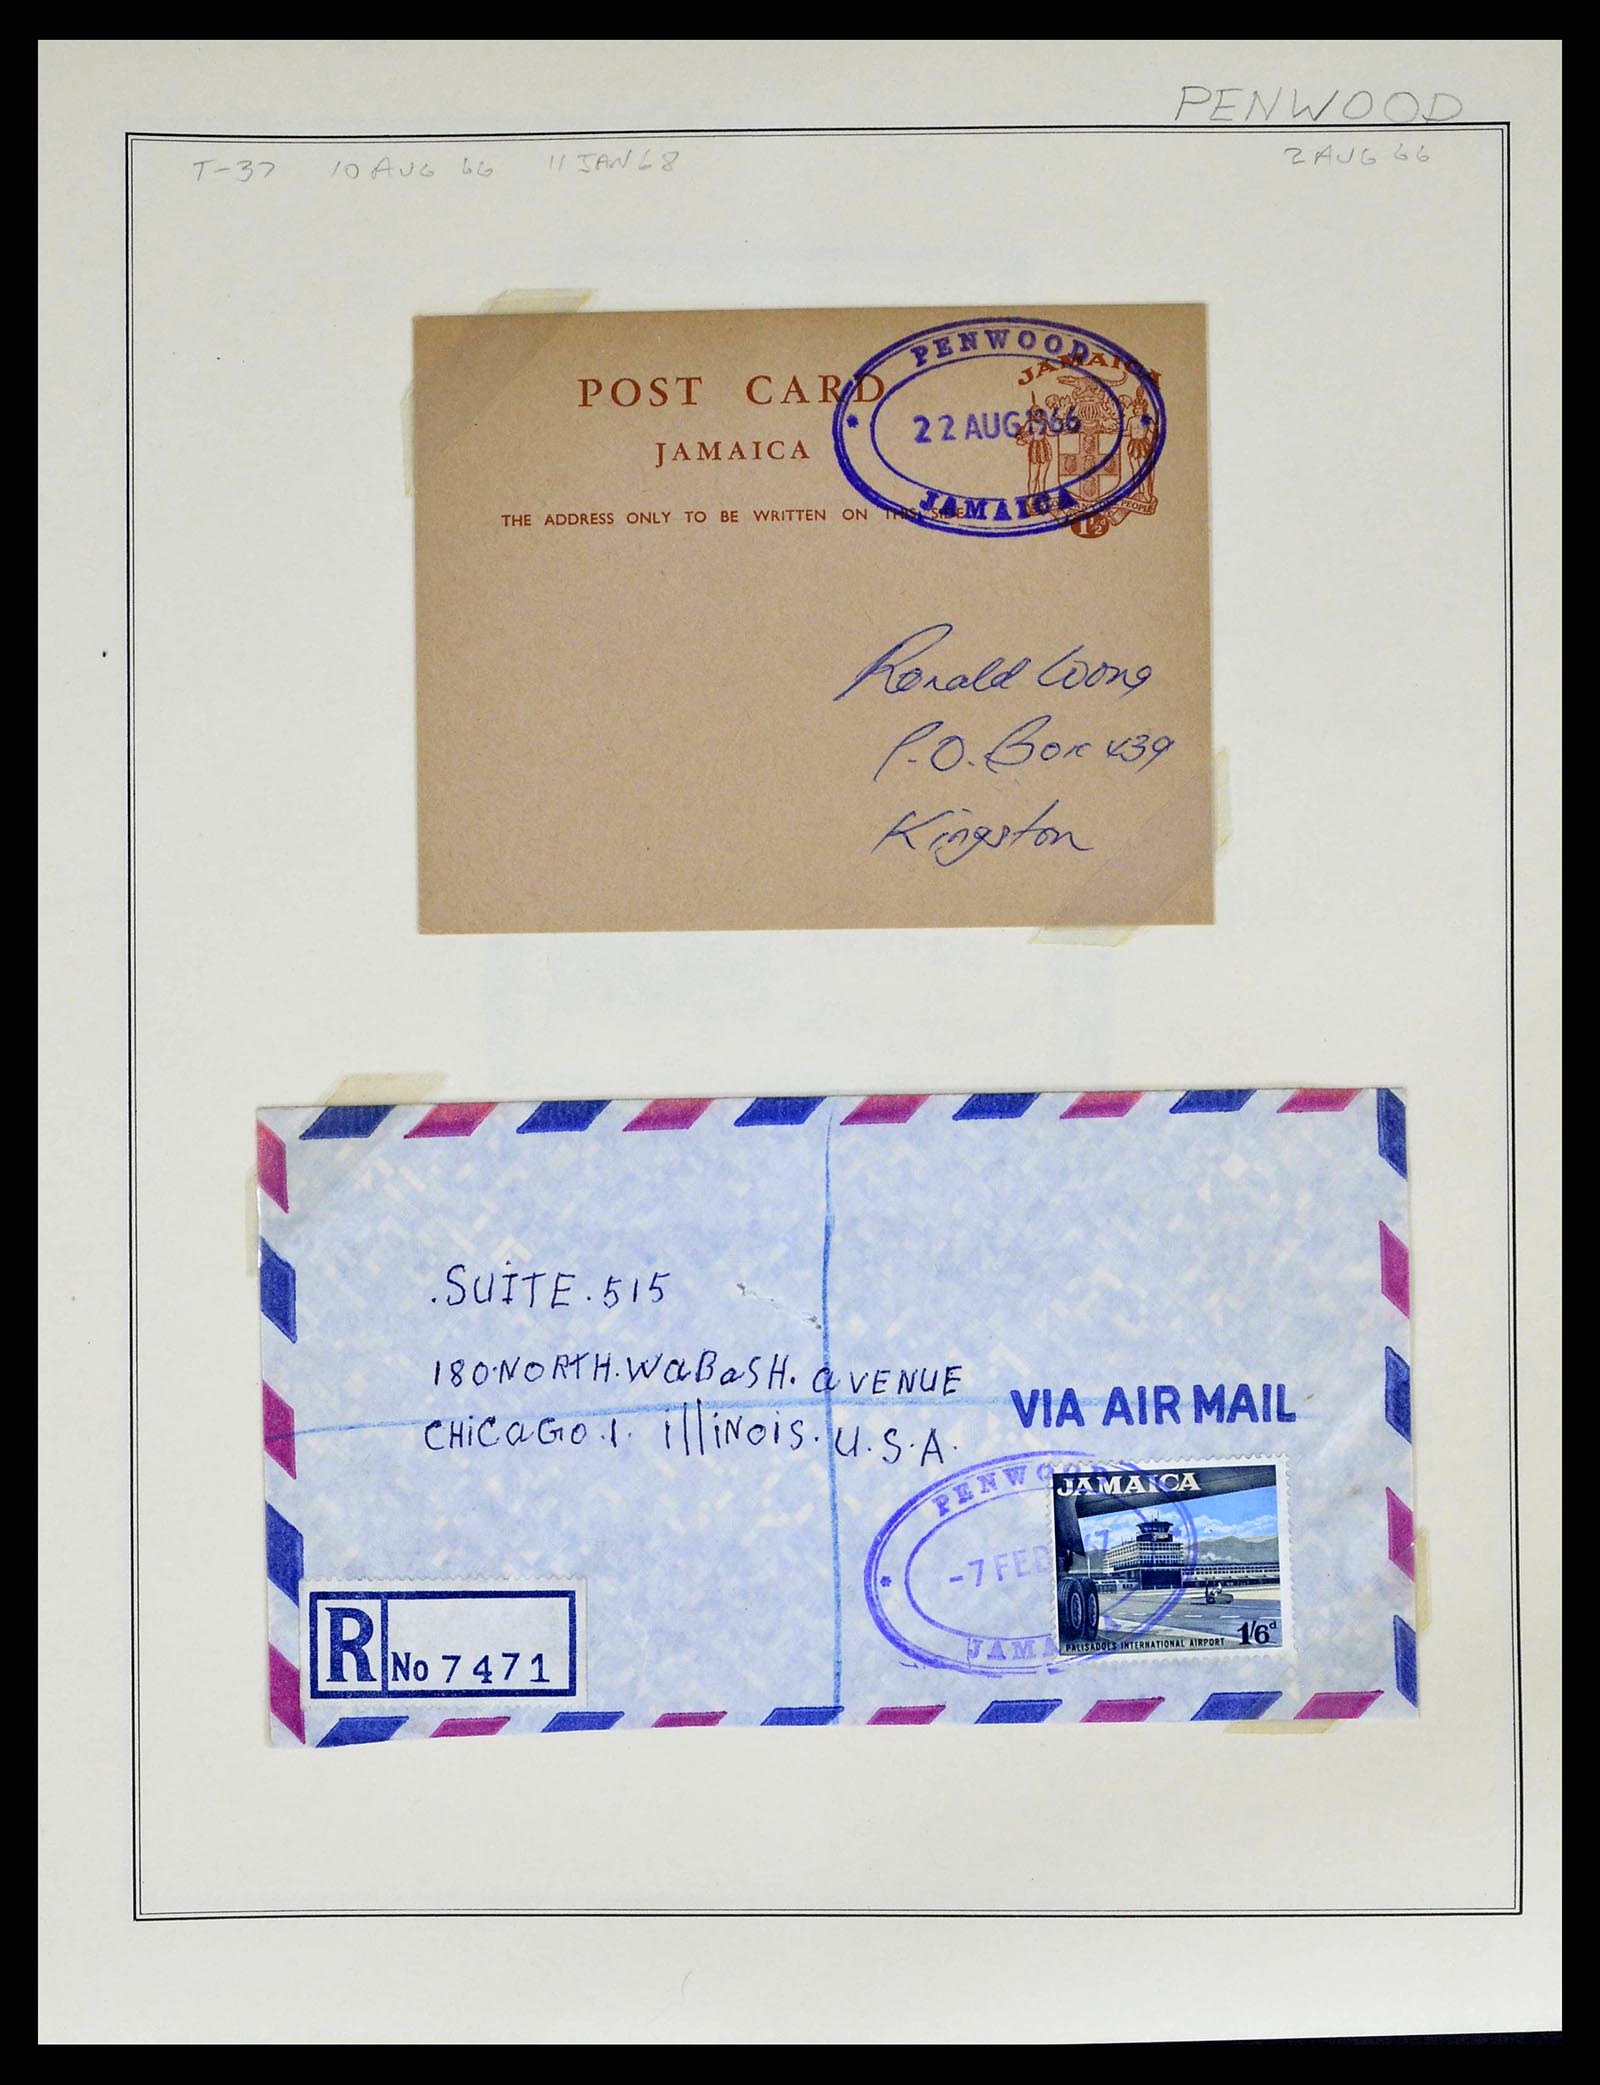 PENWOOD
T-37 10 AUG 66 11 JAN 68 2 AUG 66
PENWOOD
22 AUG 1966
JAMAICA
JAMAICA
1½
POST CARD
JAMAICA
THE ADDRESS ONLY TO BE WRITTEN ON THIS SIDE
Ronald Woong
P.O. Box 439
Kingston
.SUITE.515
180.NORTH.WaBaSH.aVENUE
CHiCaGO.1. illiNOiS. U.S.A.
VIA AIR MAIL
PENWOOD
-7 FEB 67
JAMA
JAMAICA
PALISADOES INTERNATIONAL AIRPORT 1/6d
R No 7471